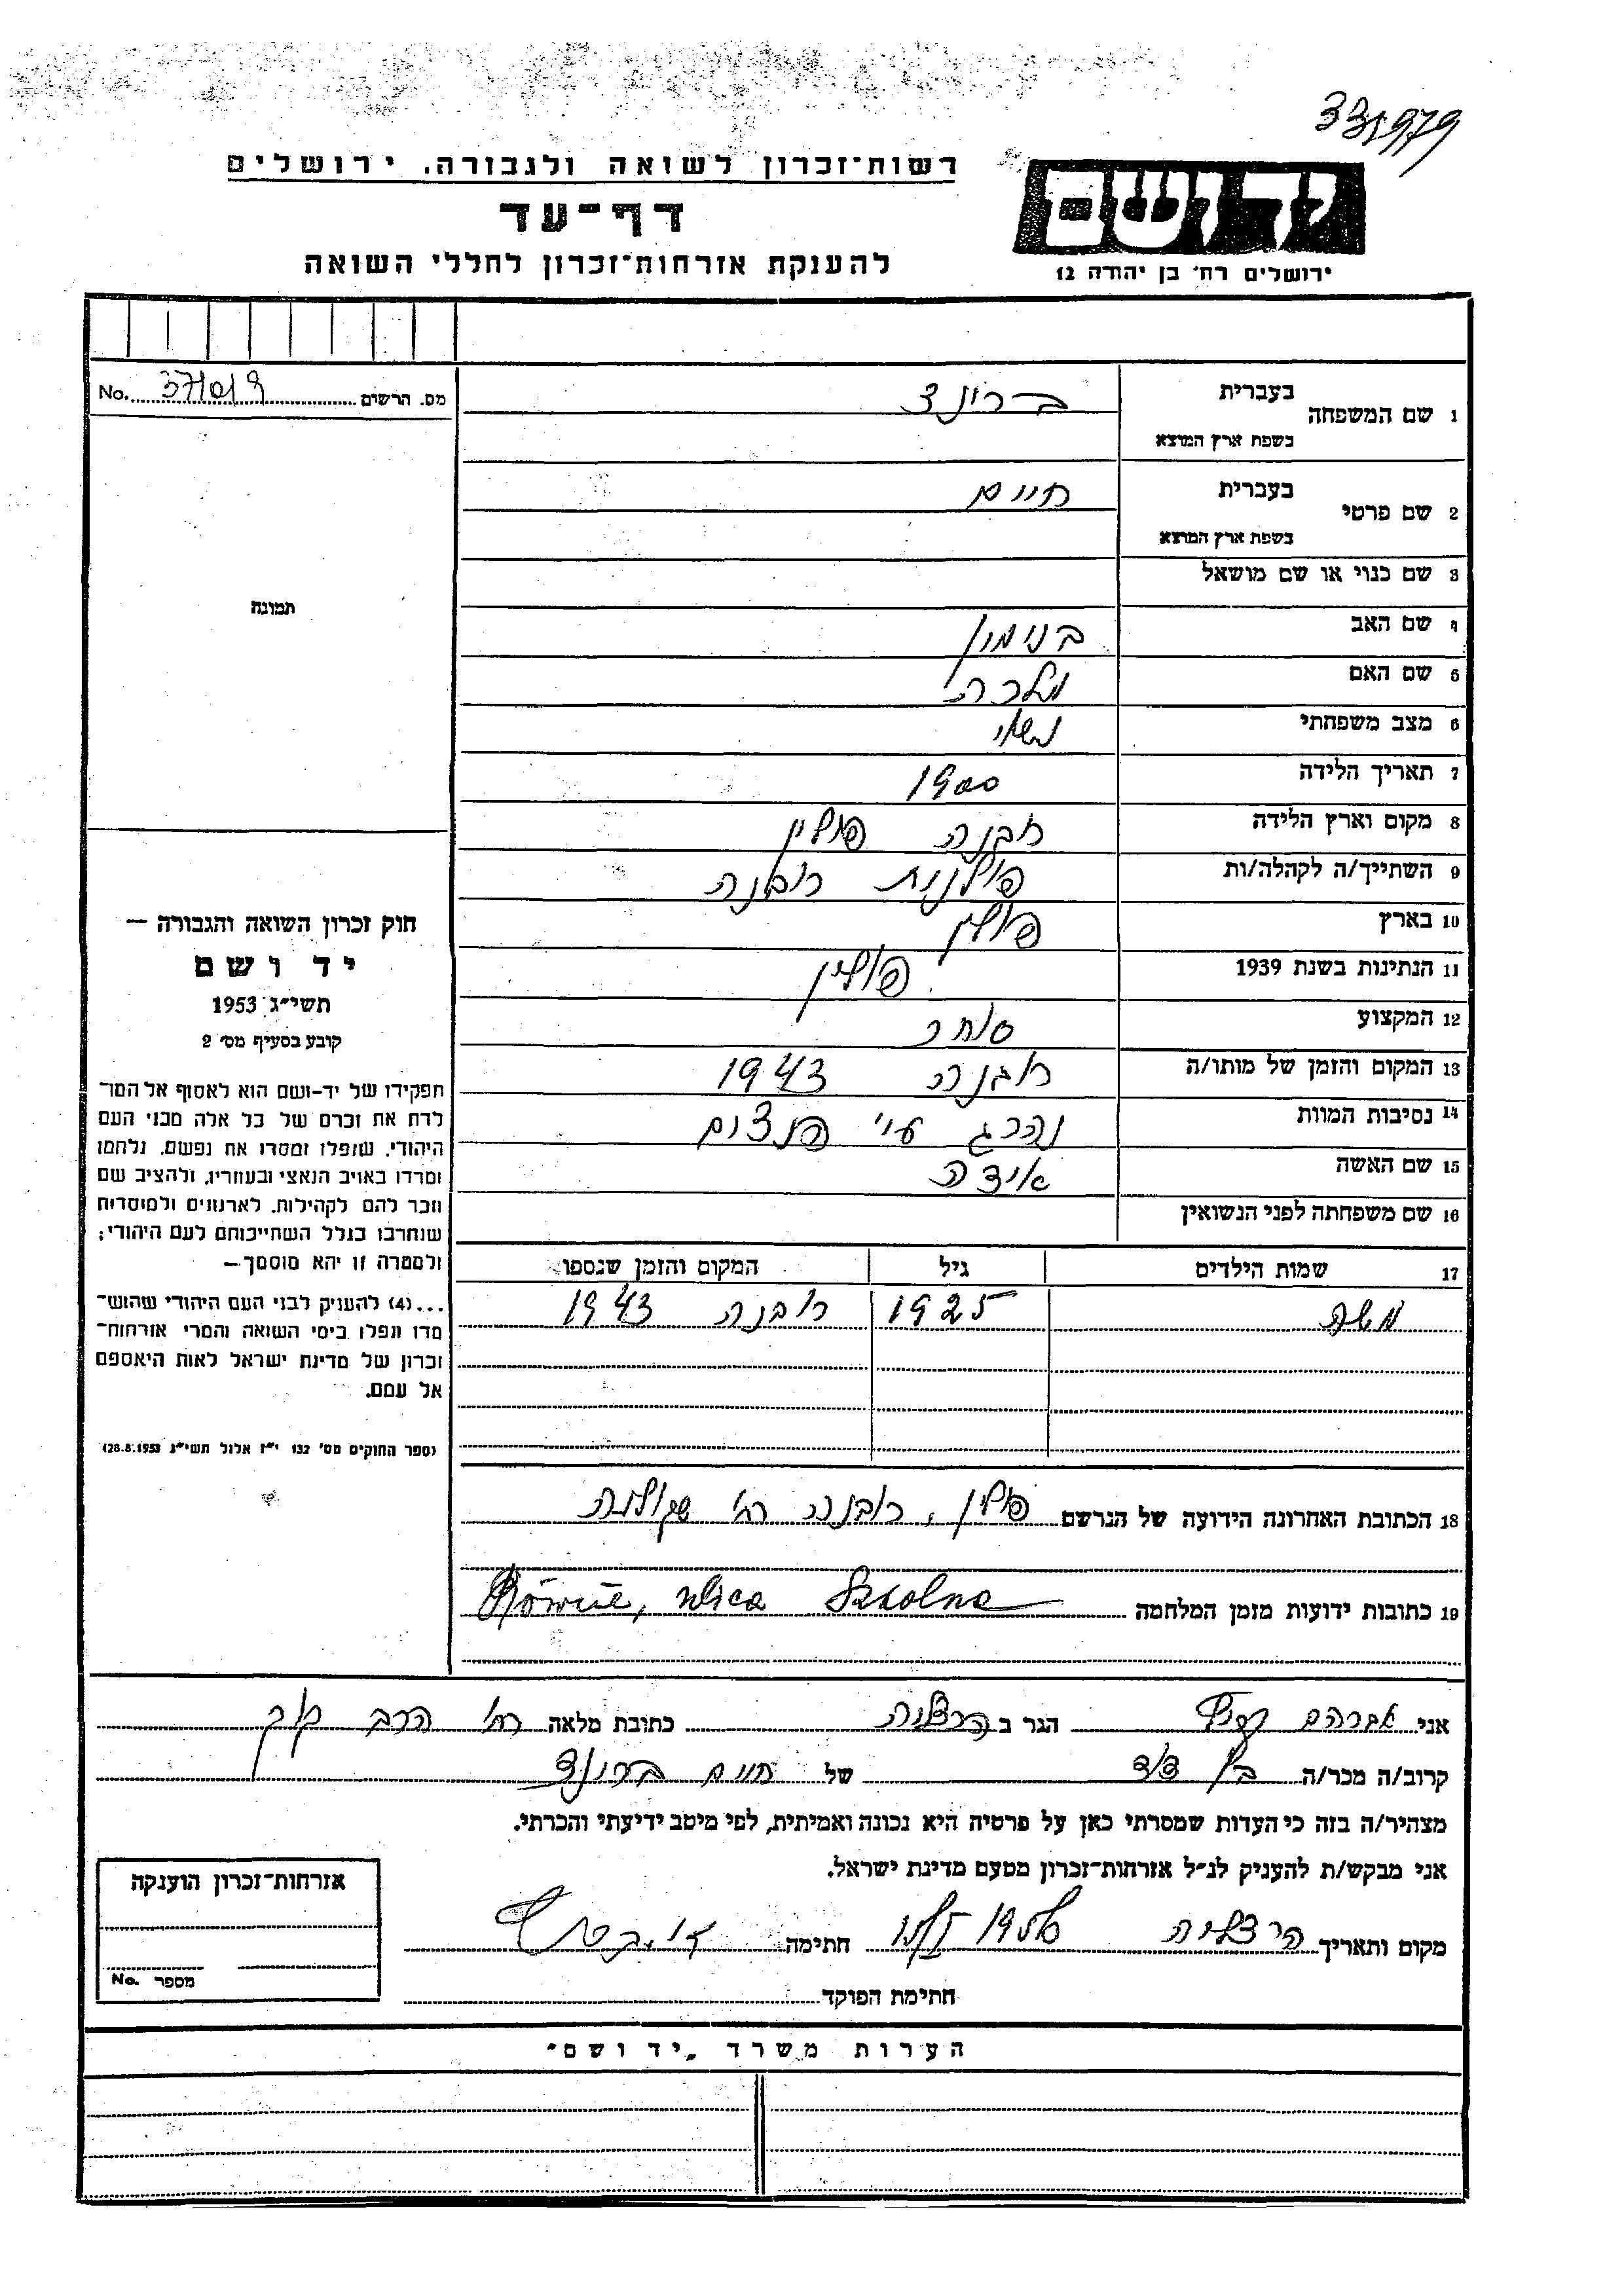 רשות־זכרון לשואה ולגבורה, ירושלים
דף־עד
להענקת אזרחות־זכרון לחללי השואה
יד ושם
ירושלים רח׳ בן יהודה 12
מס. הרשים No. 371019
1 שם המשפחה בעברית ברונצ
בשפת ארץ המוצא
2 שם פרטי בעברית חיים
בשפת ארץ המוצא
3 שם כנוי או שם מושאל
4 שם האב
5 שם האם מלכה
6 מצב משפחתי נשאוי
7 תאריך הלידה 1900
8 מקום וארץ הלידה רובנה פולין
9 השתייך/ה לקהלה/ות רובנה
10 בארץ פולין
11 הנתינות בשנת 1939 פולין
12 המקצוע סוחר
13 המקום והזמן של מותו/ה רובנה 1943
14 נסיבות המוות נהרג ע״י
15 שם האשה אידה
16 שם משפחתה לפני הנשואין
17 שמות הילדים גיל המקום והזמן שנספו
משה 1925 רובנה 1943
18 הכתובת האחרונה הידועה של הנרשם פולין, רובנה רח׳ שקולנה
19 כתובות ידועות מזמן המלחמה Równe, ulica Szkolna
תמונה
חוק זכרון השואה והגבורה —
יד ושם
תשי״ג 1953
קובע בסעיף מס׳ 2
תפקידו של יד־ושם הוא לאסוף אל המו־
לדת את זכרם של כל אלה מבני העם
היהודי, שנפלו ומסרו את נפשם, נלחמו
ומרדו באויב הנאצי ובעוזריו, ולהציב שם
וזכר להם לקהילות, לארגונים ולמוסדות
שנחרבו בגלל השתייכותם לעם היהודי;
ולמטרה זו יהא מוסמך —
...(4) להעניק לבני העם היהודי שהוש־
מדו ונפלו בימי השואה והמרי אזרחות־
זכרון של מדינת ישראל לאות היאספם
אל עמם.
(ספר החוקים מס׳ 132 י״ז אלול תשי״ג 28.8.1953)
אני אברהם הגר ב הרצליה כתובת מלאה רח׳ הרב קוק
קרוב/ה מכר/ה בן דוד של חיים ברונצ
מצהיר/ה בזה כי העדות שמסרתי כאן על פרטיה היא נכונה ואמיתית, לפי מיטב ידיעתי והכרתי.
אני מבקש/ת להעניק לנ״ל אזרחות־זכרון מטעם מדינת ישראל.
מקום ותאריך הרצליה חתימה
חתימת הפוקד
אזרחות־זכרון הוענקה
מספר No.
הערות משרד „יד ושם״